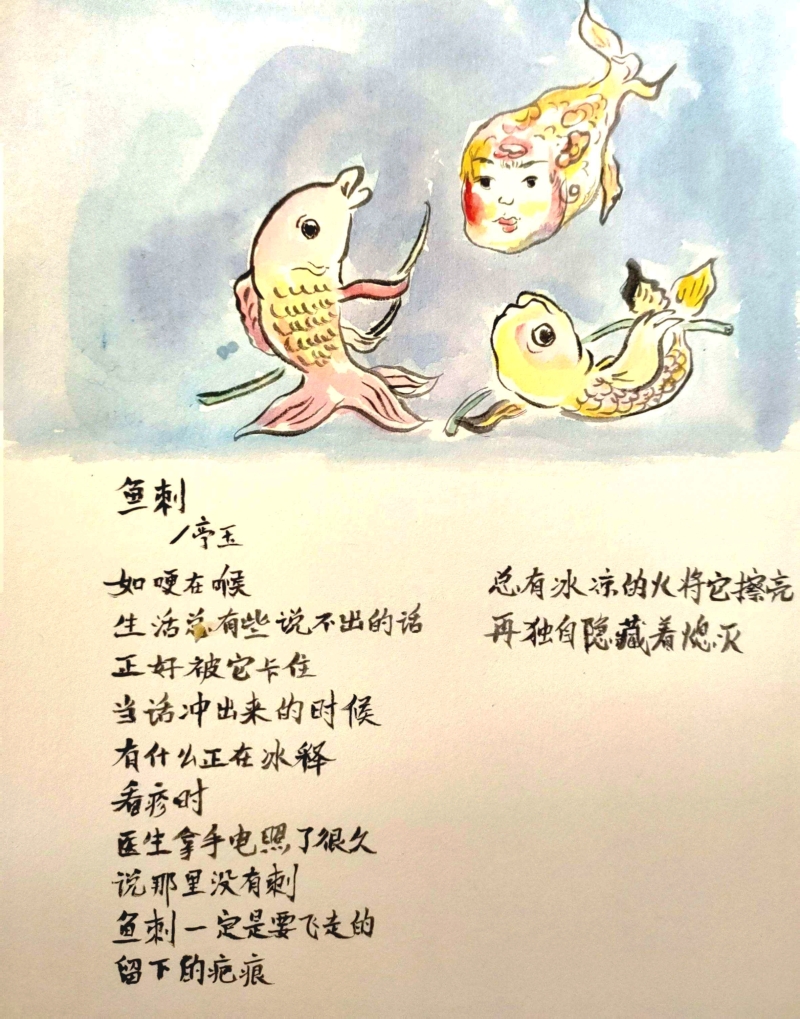 鱼刺
/亭玉
如哽在喉
生活总有些说不出的话
正好被它卡住
当话冲出来的时候
有什么正在冰释
看疹时
医生拿手电照了很久
说那里没有刺
鱼刺一定是要飞走的
留下的疤痕
总有冰凉的火将它擦亮
再独自隐藏着熄灭